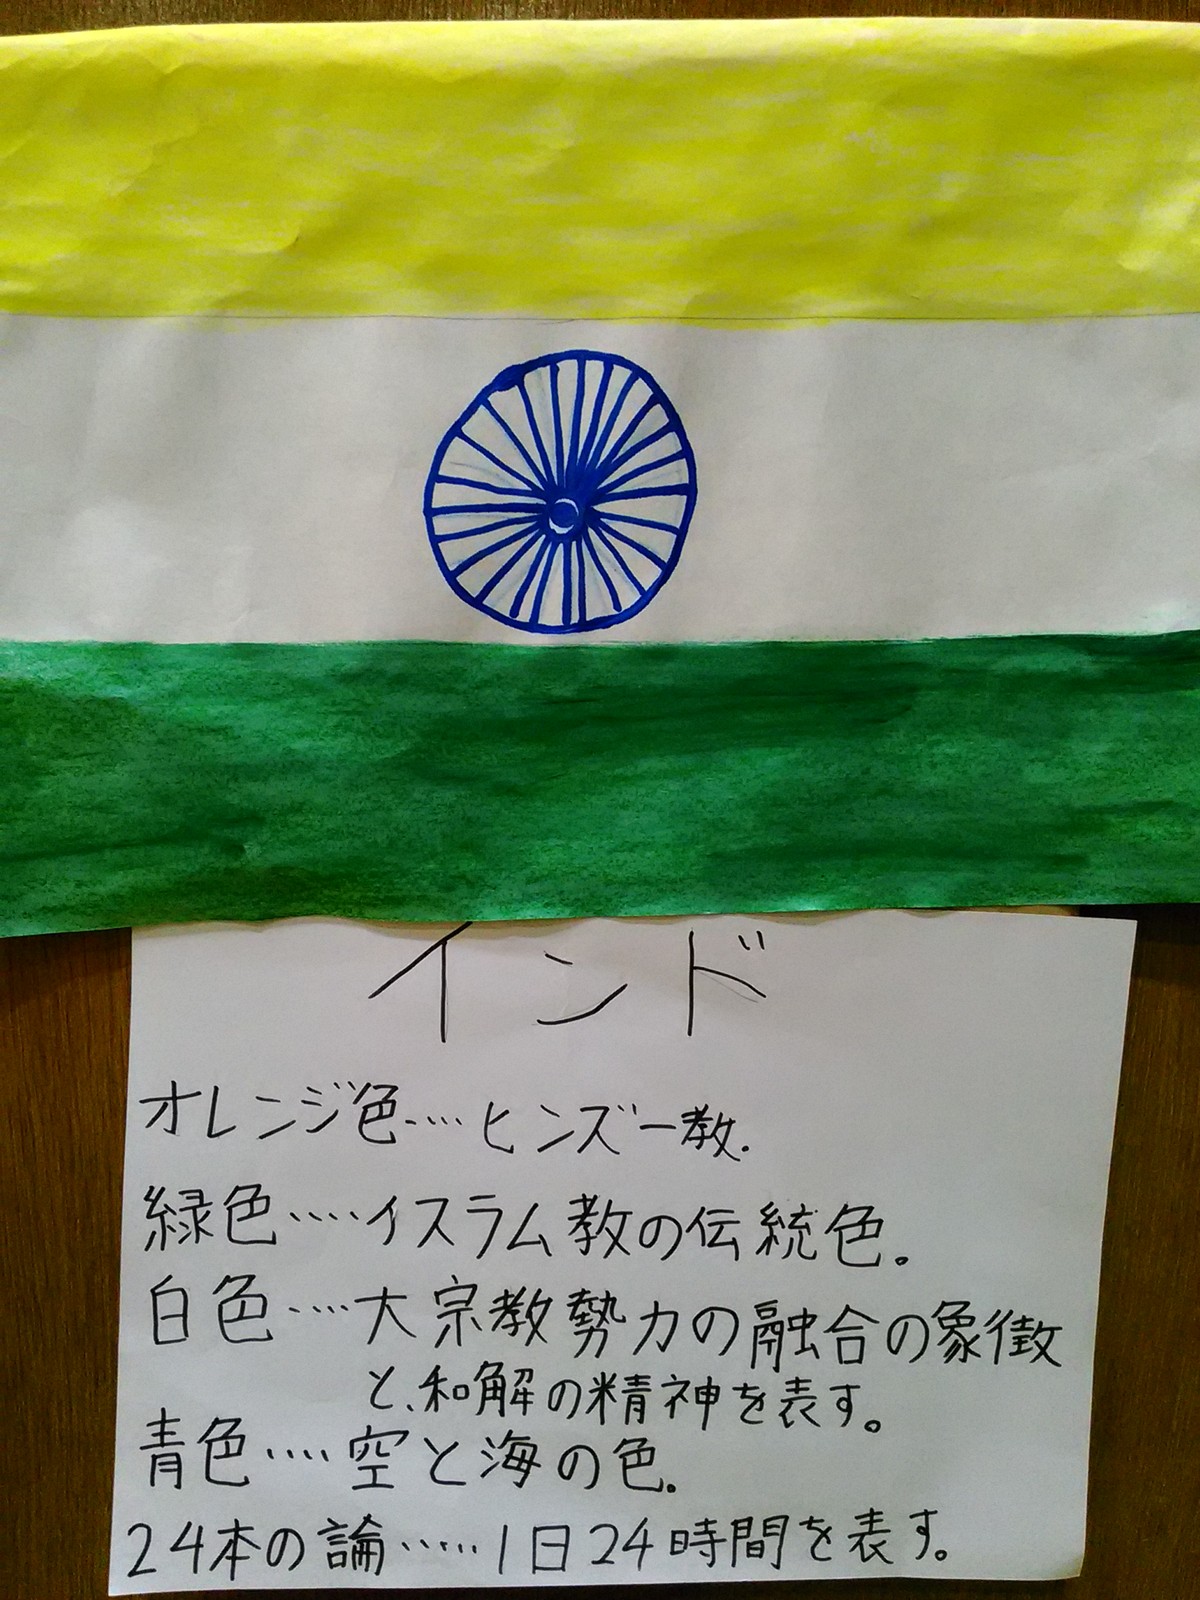 インド
オレンジ色‥‥ヒンズー教.
緑色‥‥イスラム教の伝統色。
白色‥‥大宗教勢力の融合の象徴
と、和解の精神を表す。
青色‥‥空と海の色。
24本の論‥‥‥1日24時間を表す。